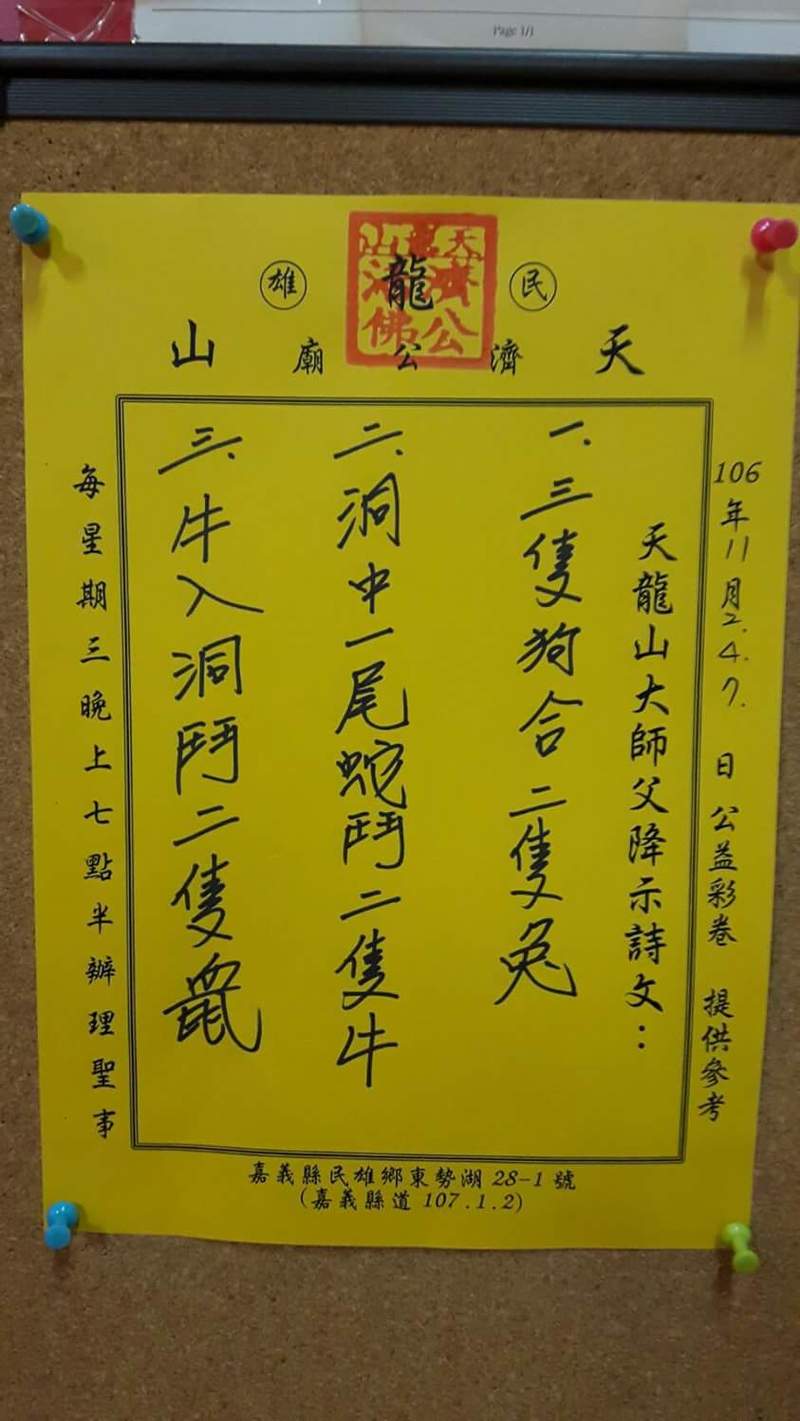 Page 1/1
民 龍 雄
天龍山濟公佛
天 濟公廟 山
106年11月2.4.7.日公益彩卷 提供參考
天龍山大師父降示詩文：
一、三隻狗合二隻兔
二、洞中一尾蛇鬥二隻牛
三、牛入洞鬥二隻鼠
每星期三晚上七點半辦理聖事
嘉義縣民雄鄉東勢湖28-1號
(嘉義縣道107.1.2)